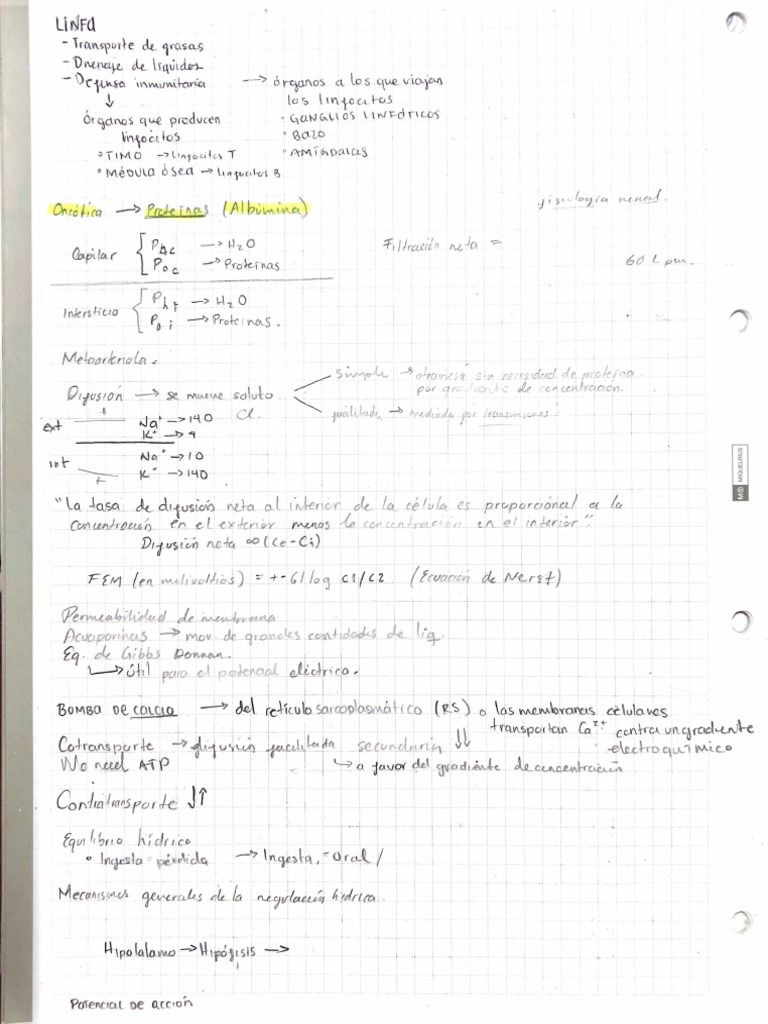 LINFA
- Transporte de grasas
- Drenaje de líquidos
- Defensa inmunitaria → órganos a los que viajan
los linfocitos
↓
Órganos que producen
linfocitos
• GANGLIOS LINFÓRICOS
• BAZO
• AMÍGDALAS
• TIMO → linfocitos T
• MÉDULA ÓSEA → linfocitos B
Oncótica → Proteínas (Albúmina)
fisiología renal.
Capilar { Phc → H2O
Poc → Proteínas
Filtración neta =
60 L pm.
Intersticio { Phi → H2O
Poi → Proteínas.
Metaarteriola.
Difusión → se mueve soluto
simple → atraviesa sin necesidad de proteína
por gradiente de concentración.
facilitada → mediada por
ext Na+ → 140 Cl
K+ → 4
int Na+ → 10
K+ → 140
"La tasa de difusión neta al interior de la célula es proporcional a la
concentración en el exterior menos la concentración en el interior".
Difusión neta ∞ (Ce-Ci)
FEM (en milivoltios) = +- 61 log C1/C2 (Ecuación de Nerst)
Permeabilidad de membrana
Acuaporinas → mov. de grandes cantidades de liq.
Eq. de Gibbs Donnan.
↳ útil para el potencial eléctrico.
BOMBA DE CALCIO → del retículo sarcoplasmático (RS) o las membranas celulares
transportan Ca2+ contra un gradiente
electroquímico
Cotransporte → difusión facilitada secundaria ↓↓
No need ATP ↳ a favor del gradiente de concentración
Contratransporte ↓↑
Equilibrio hídrico
• Ingesta = pérdida → Ingesta = oral /
Mecanismos generales de la regulación hídrica
Hipotálamo → Hipófisis →
POTENCIAL DE ACCIÓN
MIQUELRIUS